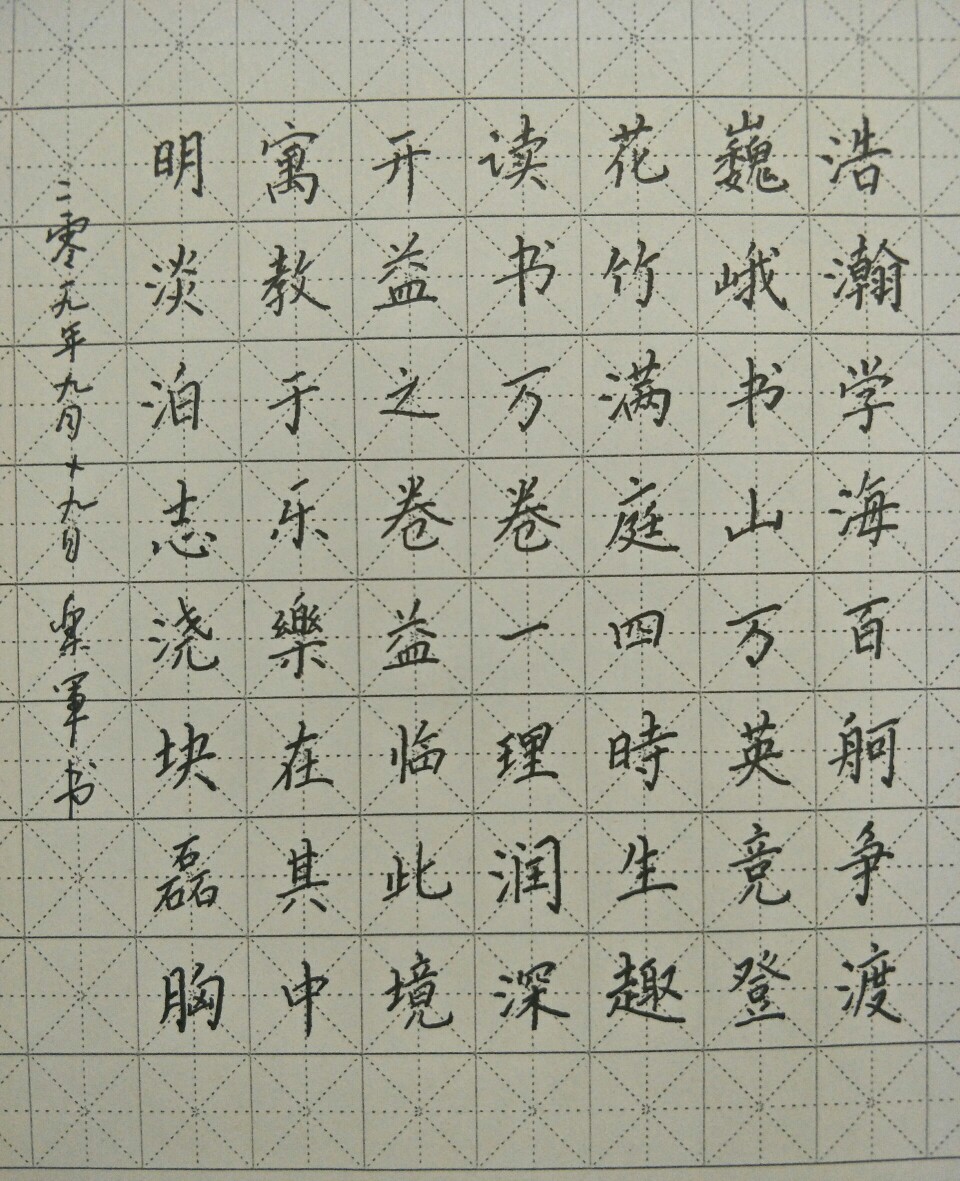 浩瀚学海百舸争渡
巍峨书山万英竞登
花竹满庭四時生趣
读书万卷一理润深
开益之卷益临此境
寓教于乐樂在其中
明淡泊志浇块磊胸
二零一九年九月十九日 军书